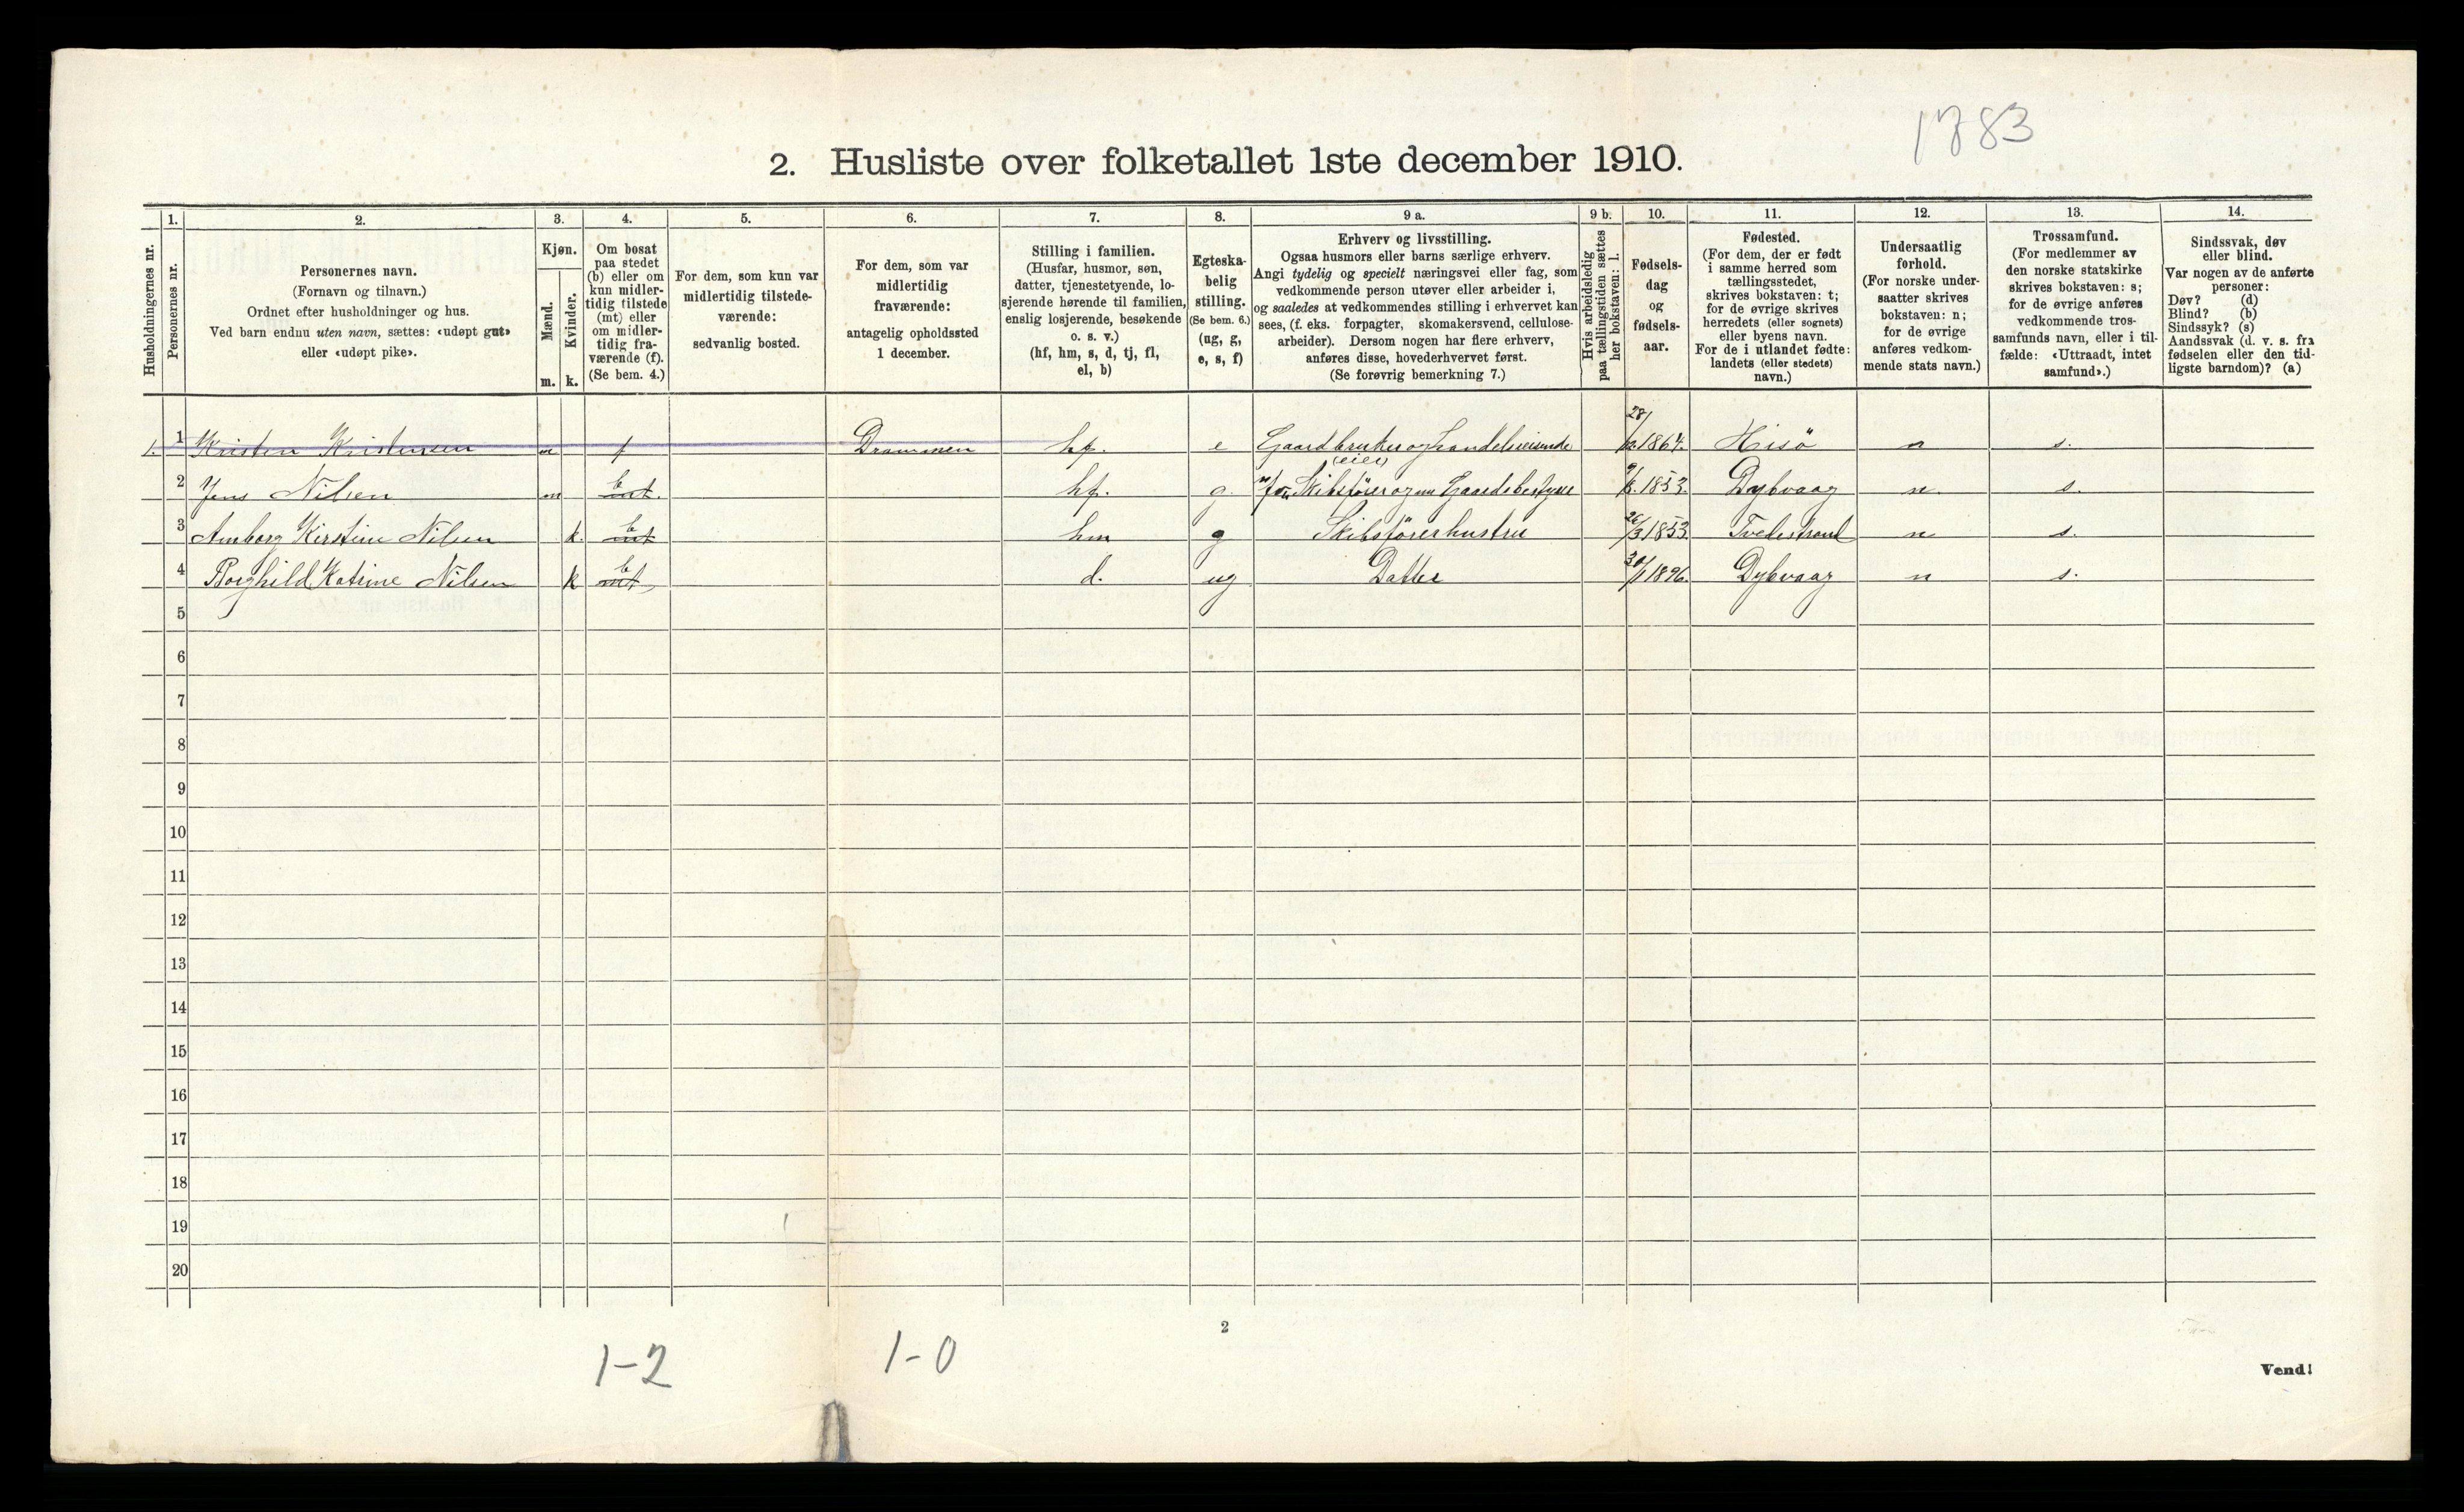 1783
2. Husliste over folketallet 1ste december 1910.
Husholdningernes nr.
1.
Personernes nr.
2.
Personernes navn.
(Fornavn og tilnavn.)
Ordnet efter husholdninger og hus.
Ved barn endnu uten navn, sættes: «udøpt gut»
eller «udøpt pike».
3.
Kjøn.
Mænd.
Kvinder.
m. k.
4.
Om bosat
paa stedet
(b) eller om
kun midler-
tidig tilstede
(mt) eller
om midler-
tidig fra-
værende (f).
(Se bem. 4.)
5.
For dem, som kun var
midlertidig tilstede-
værende:
sedvanlig bosted.
6.
For dem, som var
midlertidig
fraværende:
antagelig opholdssted
1 december.
7.
Stilling i familien.
(Husfar, husmor, søn,
datter, tjenestetyende, lo-
sjerende hørende til familien,
enslig losjerende, besøkende
o. s. v.)
(hf, hm, s, d, tj, fl,
el, b)
8.
Egteska-
belig
stilling.
(Se bem. 6.)
(ug, g,
e, s, f)
9 a.
Erhverv og livsstilling.
Ogsaa husmors eller barns særlige erhverv.
Angi tydelig og specielt næringsvei eller fag, som
vedkommende person utøver eller arbeider i,
og saaledes at vedkommendes stilling i erhvervet kan
sees, (f. eks. forpagter, skomakersvend, cellulose-
arbeider). Dersom nogen har flere erhverv,
anføres disse, hovederhvervet først.
(Se forøvrig bemerkning 7.)
9 b.
Hvis arbeidsledig
paa tællingstiden sættes
her bokstaven: l.
10.
Fødsels-
dag
og
fødsels-
aar.
11.
Fødested.
(For dem, der er født
i samme herred som
tællingsstedet,
skrives bokstaven: t;
for de øvrige skrives
herredets (eller sognets)
eller byens navn.
For de i utlandet fødte:
landets (eller stedets)
navn.)
12.
Undersaatlig
forhold.
(For norske under-
saatter skrives
bokstaven: n;
for de øvrige
anføres vedkom-
mende stats navn.)
13.
Trossamfund.
(For medlemmer av
den norske statskirke
skrives bokstaven: s;
for de øvrige anføres
vedkommende tros-
samfunds navn, eller i til-
fælde: «Uttraadt, intet
samfund».)
14.
Sindssvak, døv
eller blind.
Var nogen av de anførte
personer:
Døv? (d)
Blind? (b)
Sindssyk? (s)
Aandssvak (d. v. s. fra
fødselen eller den tid-
ligste barndom)? (a)
1. 1 Kristen Kristensen m f Drammen hf. e Gaardbruker og Handelsreisende 28/12 1864. Hisö n s.
(eier)
2 Jens Nilsen m b mt. hf. g. Skibsfører og nu Gaardsbestyrer 9/8. 1853. Dybvaag n. s.
3 Amborg Kirstine Nilsen k. b mt hm g Skibsførerhustru 26/3 1853 Tvedestrand n s.
4 Borghild Katrine Nilsen k b mt d. ug Datter 30/1 1896. Dybvaag n s.
5
6
7
8
9
10
11
12
13
14
15
16
17
18
19
20
2
1-2 1-0
Vend!